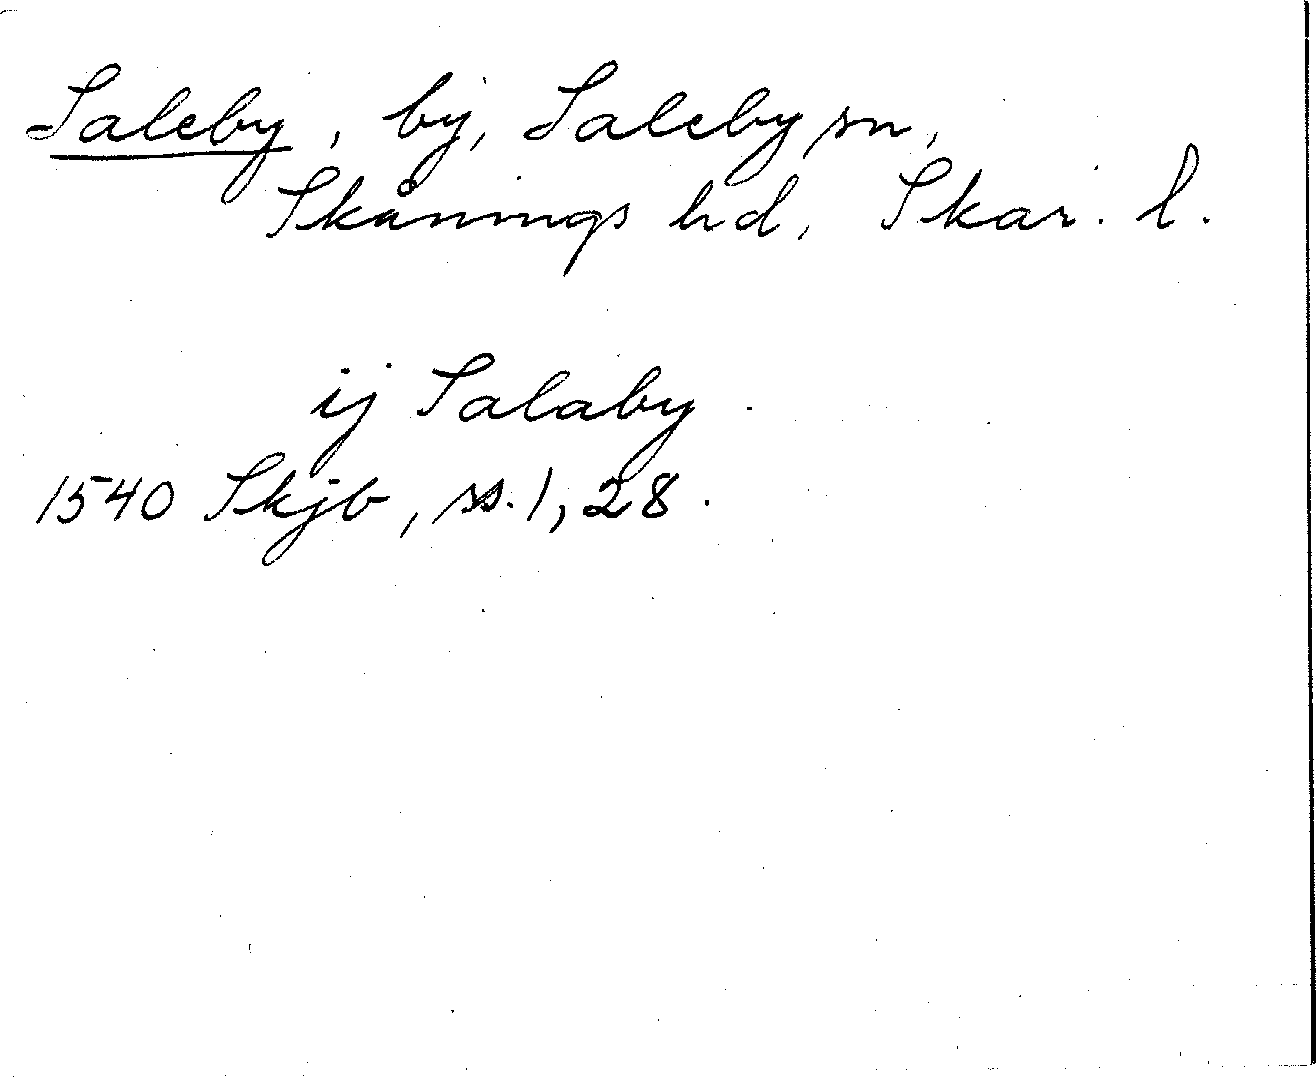 Saleby, by, Saleby sn,
Skånings hd, Skar. l.
ij Salaby.
1540 Skjb, ss. 1, 28.